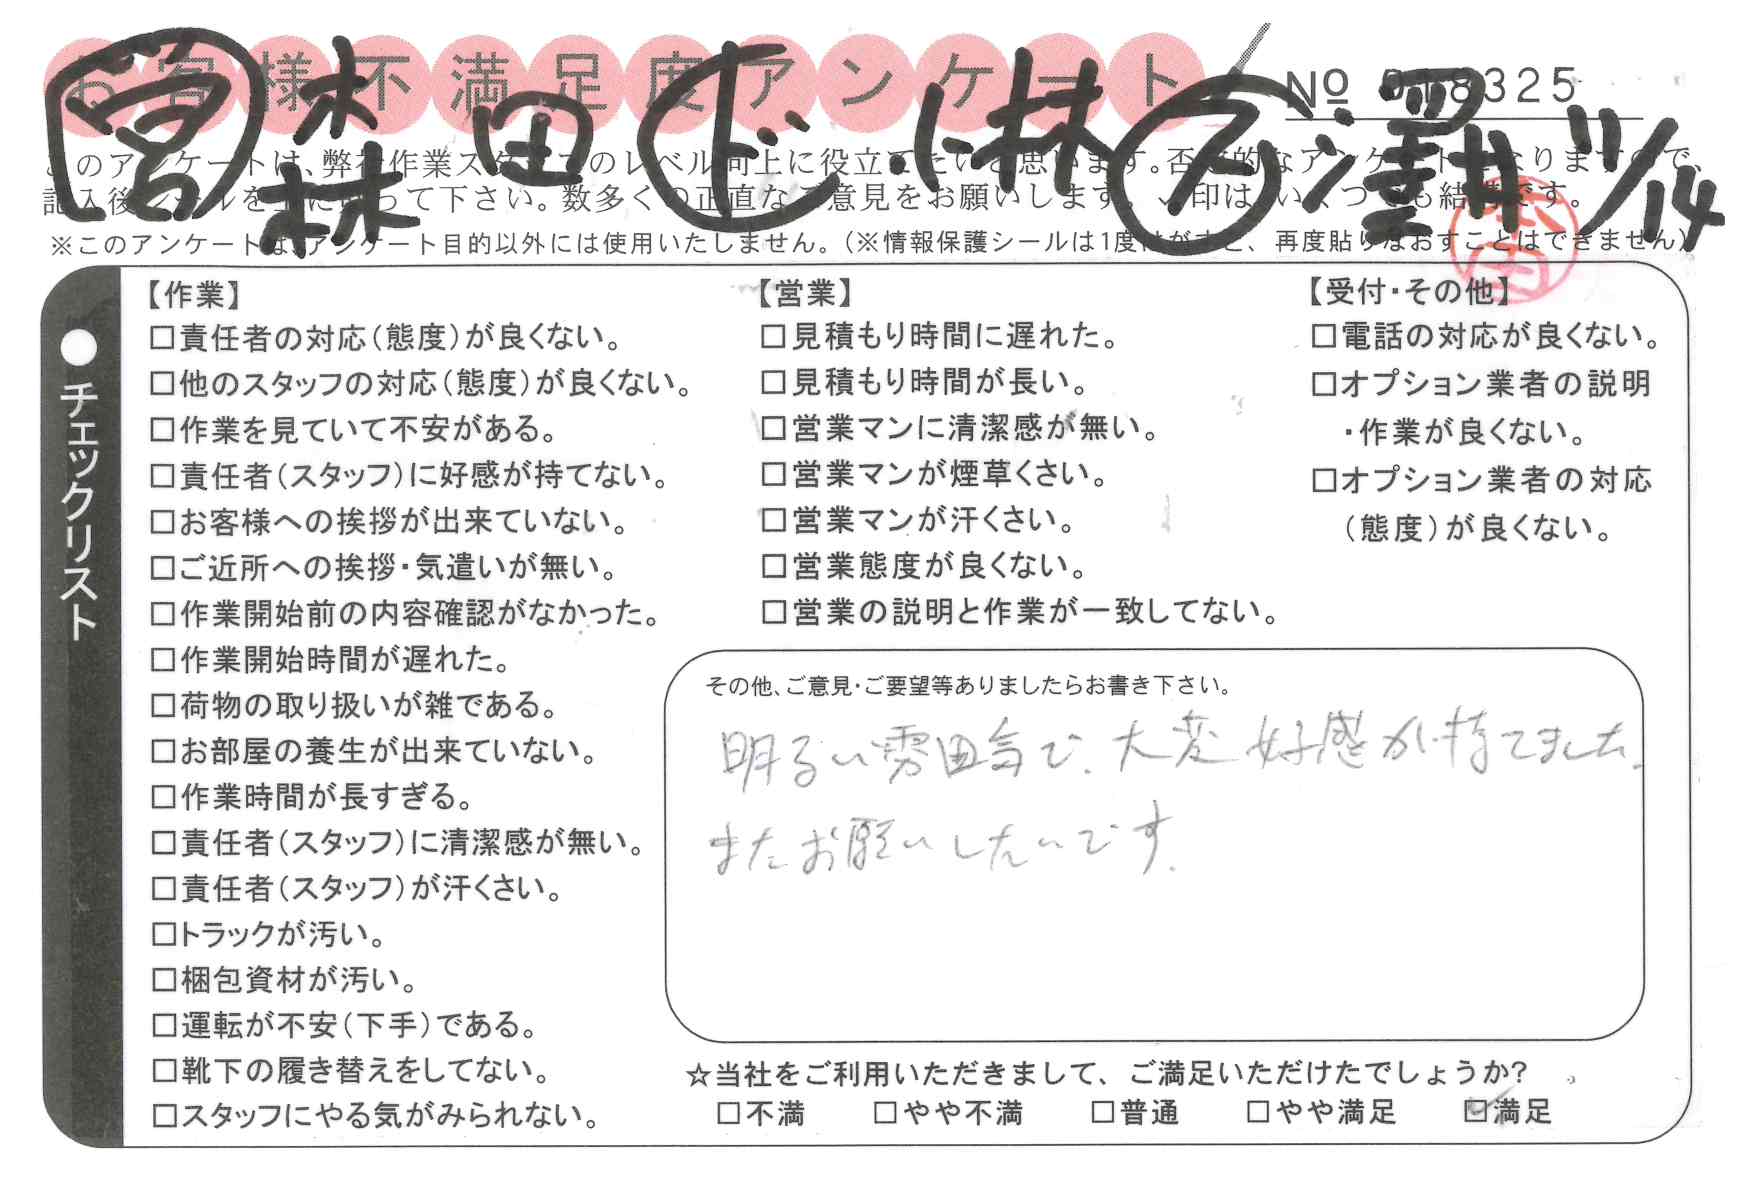 お客様不満足度アンケート
No 018325
営 森田 ド 小林 ア 澤井 11/14
このアンケートは、弊社作業スタッフのレベル向上に役立てたいと思います。否定的なアンケートになりますので、
記入後シールを上に貼って下さい。数多くの正直なご意見をお願いします。✓印は、いくつでも結構です。
※このアンケートは、アンケート目的以外には使用いたしません。(※情報保護シールは1度はがすと、再度貼りなおすことはできません)
●チェックリスト
【作業】
□責任者の対応(態度)が良くない。
□他のスタッフの対応(態度)が良くない。
□作業を見ていて不安がある。
□責任者(スタッフ)に好感が持てない。
□お客様への挨拶が出来ていない。
□ご近所への挨拶・気遣いが無い。
□作業開始前の内容確認がなかった。
□作業開始時間が遅れた。
□荷物の取り扱いが雑である。
□お部屋の養生が出来ていない。
□作業時間が長すぎる。
□責任者(スタッフ)に清潔感が無い。
□責任者(スタッフ)が汗くさい。
□トラックが汚い。
□梱包資材が汚い。
□運転が不安(下手)である。
□靴下の履き替えをしてない。
□スタッフにやる気がみられない。
【営業】
□見積もり時間に遅れた。
□見積もり時間が長い。
□営業マンに清潔感が無い。
□営業マンが煙草くさい。
□営業マンが汗くさい。
□営業態度が良くない。
□営業の説明と作業が一致してない。
【受付・その他】
□電話の対応が良くない。
□オプション業者の説明
・作業が良くない。
□オプション業者の対応
(態度)が良くない。
その他、ご意見・ご要望等ありましたらお書き下さい。
明るい雰囲気で、大変好感が持てました。
またお願いしたいです。
☆当社をご利用いただきまして、ご満足いただけたでしょうか?
□不満 □やや不満 □普通 □やや満足 ☑満足